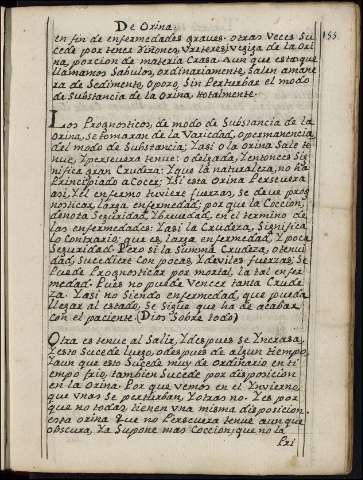 De Orina
155
en fin de enfermedades graves. otras veces Su
cede por tener Riñones, Vreteres, Vegiga de la Ori
na, porcion de materia Crasa. Aun que estas que
llamamos Sabulos, ordinariamente, Salen amane
ra de Sedimento, Oporo, Sin Perturbar el modo
de Substancia de la Orina totalmente.
Los Prognosticos, de modo de Substancia de la
Orina, Se tomaran de la Variedad, o permanencia,
del modo de Substancia; Yasi o la Orina Sale te
nue, Ypersevera tenue: o delgada, Yentonces Sig
nifica gran Crudeza: Yque la naturaleza, no ha
Principiado a Cocer; Ysi esta Orina Persevera
asi, Yel enfermo tuviere fuerzas, Se deve prog
nosticar, larga enfermedad; por que la Coccion,
denota Seguridad, Ybrevedad, en el termino de
las enfermedades: Yasi la Crudeza, Significa
lo Contrario, que es, larga enfermedad, Ypoca
Seguridad. Pero si la Summa Crudeza, otenui
dad, Sucediere con pocas, Ydeviles fuerzas; Se
Puede Prognosticar por mortal, la tal enfer
medad. Pues no puede Vencer tanta Crude
za. Yasi no Siendo enfermedad, que pueda
llegar al estado, Se Sigue que ha de acabar
con el paciente. (Dios Sobre todo)
Otra es tenue al Salir, Ydespues se Yncrasa,
Yesto Sucede luego, odespues de algun tiempo,
Yaun que esto Sucede muy de Ordinario en ti
empo frio, tambien Sucede por disposicion
en la Orina. Por que vemos en el Ynvierno,
que vnas Se perturban, Yotras no. Yes por
que no todas tienen vna misma disposicion.
esta orina que no Persevera tenue aunque
obscura, Ya Supone mas Coccion, que no la
Pri